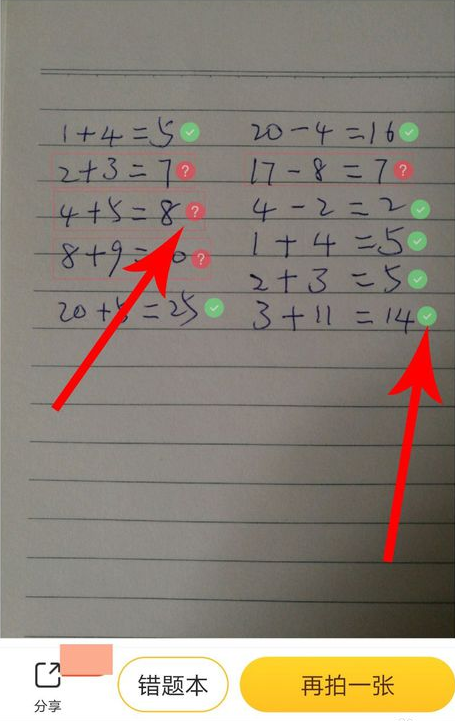 1+4=5
2+3=7
4+5=8
8+9=
20+5=25
20-4=16
17-8=7
4-2=2
1+4=5
2+3=5
3+11=14
分享
错题本
再拍一张